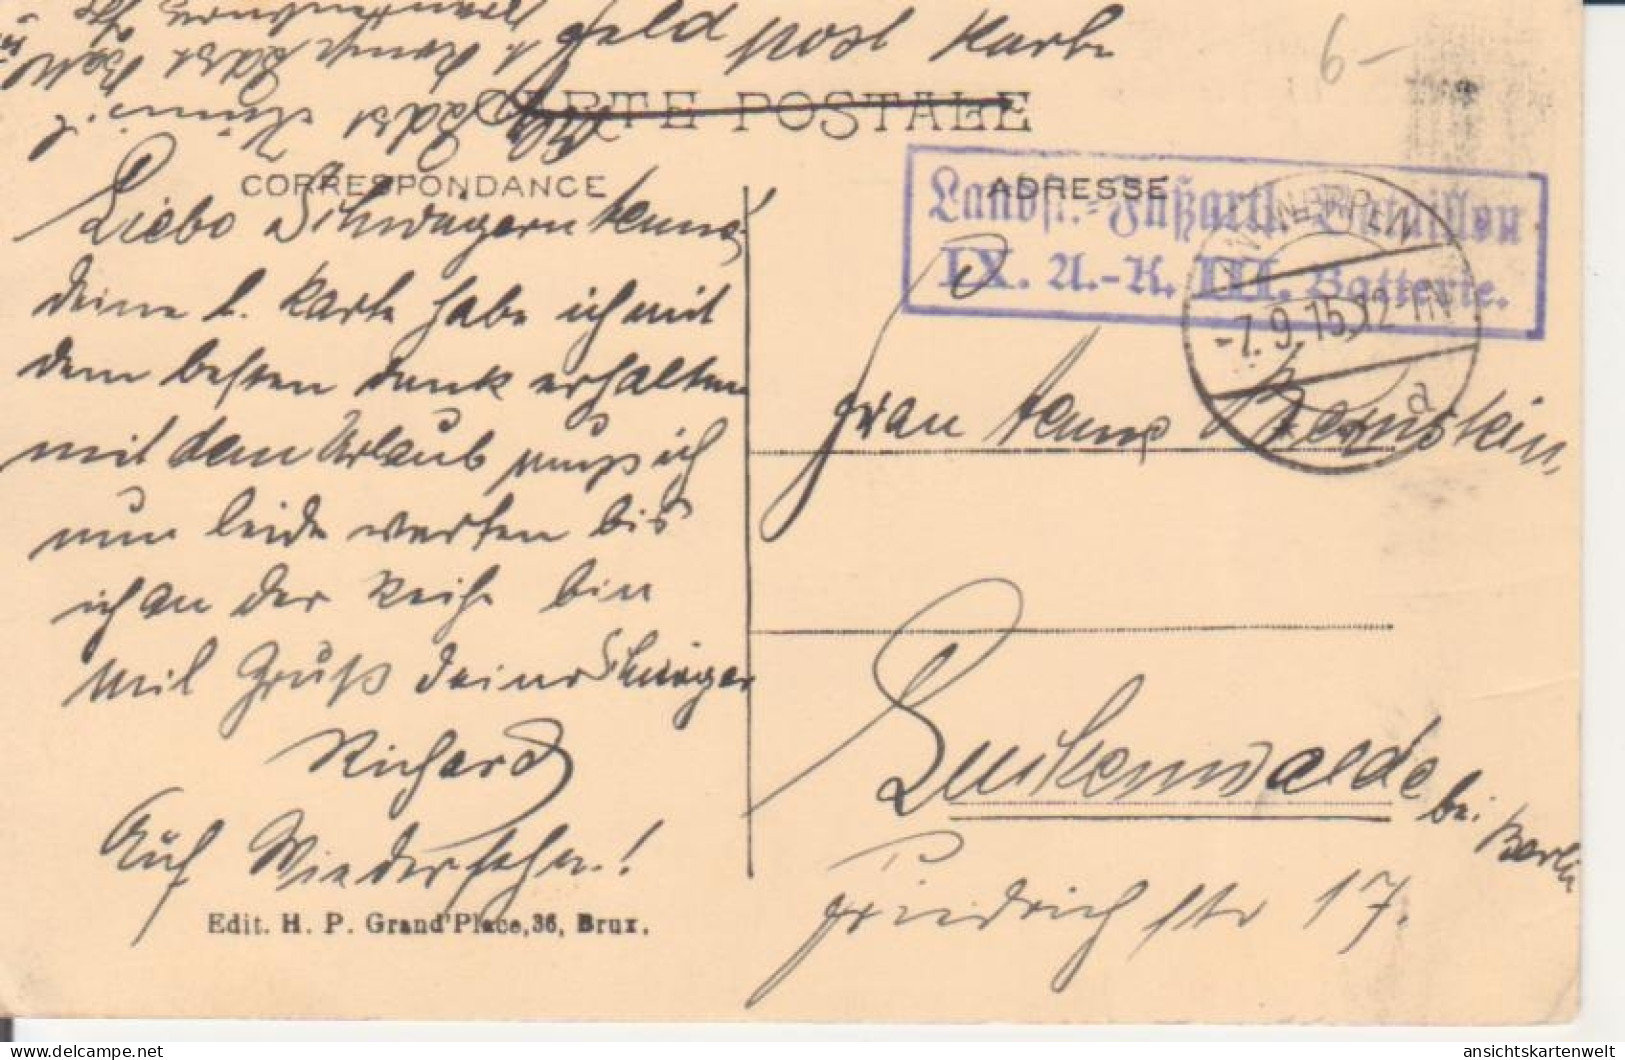 Feld post Karte
6-
CARTE POSTALE
CORRESPONDANCE
ADRESSE
Landst.-Fußartl. Bataillon
IX. A.-K. III. Batterie.
ANTWERPEN
-7.9.15. 12-1N
a
Liebe Schwägern
deine l. Karte habe ich mit
dem besten dank erhalten
mit dem Urlaub muß ich
nun leide warten bis
ich an der Reihe bin
mit Gruß deiner Schwager
Richard
Auf Wiedersehn!
Frau Bernstein,
Luckenwalde
bei Berlin
Friedrich str 17.
Edit. H. P. Grand'Place, 36, Brux.
ansichtskartenwelt